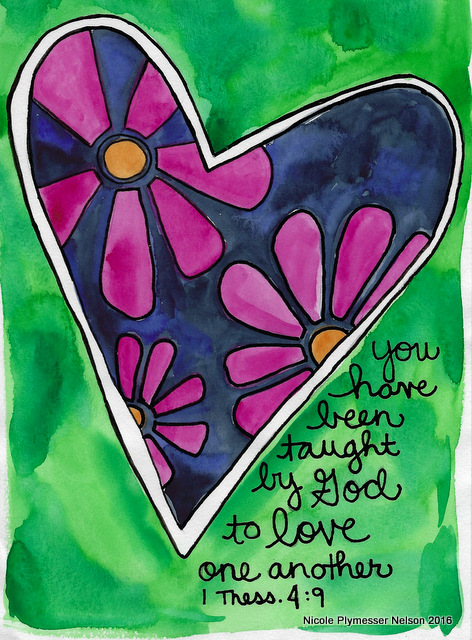 you
have
been
taught
by God
to love
one another
1 Thess. 4:9
Nicole Plymesser Nelson 2016